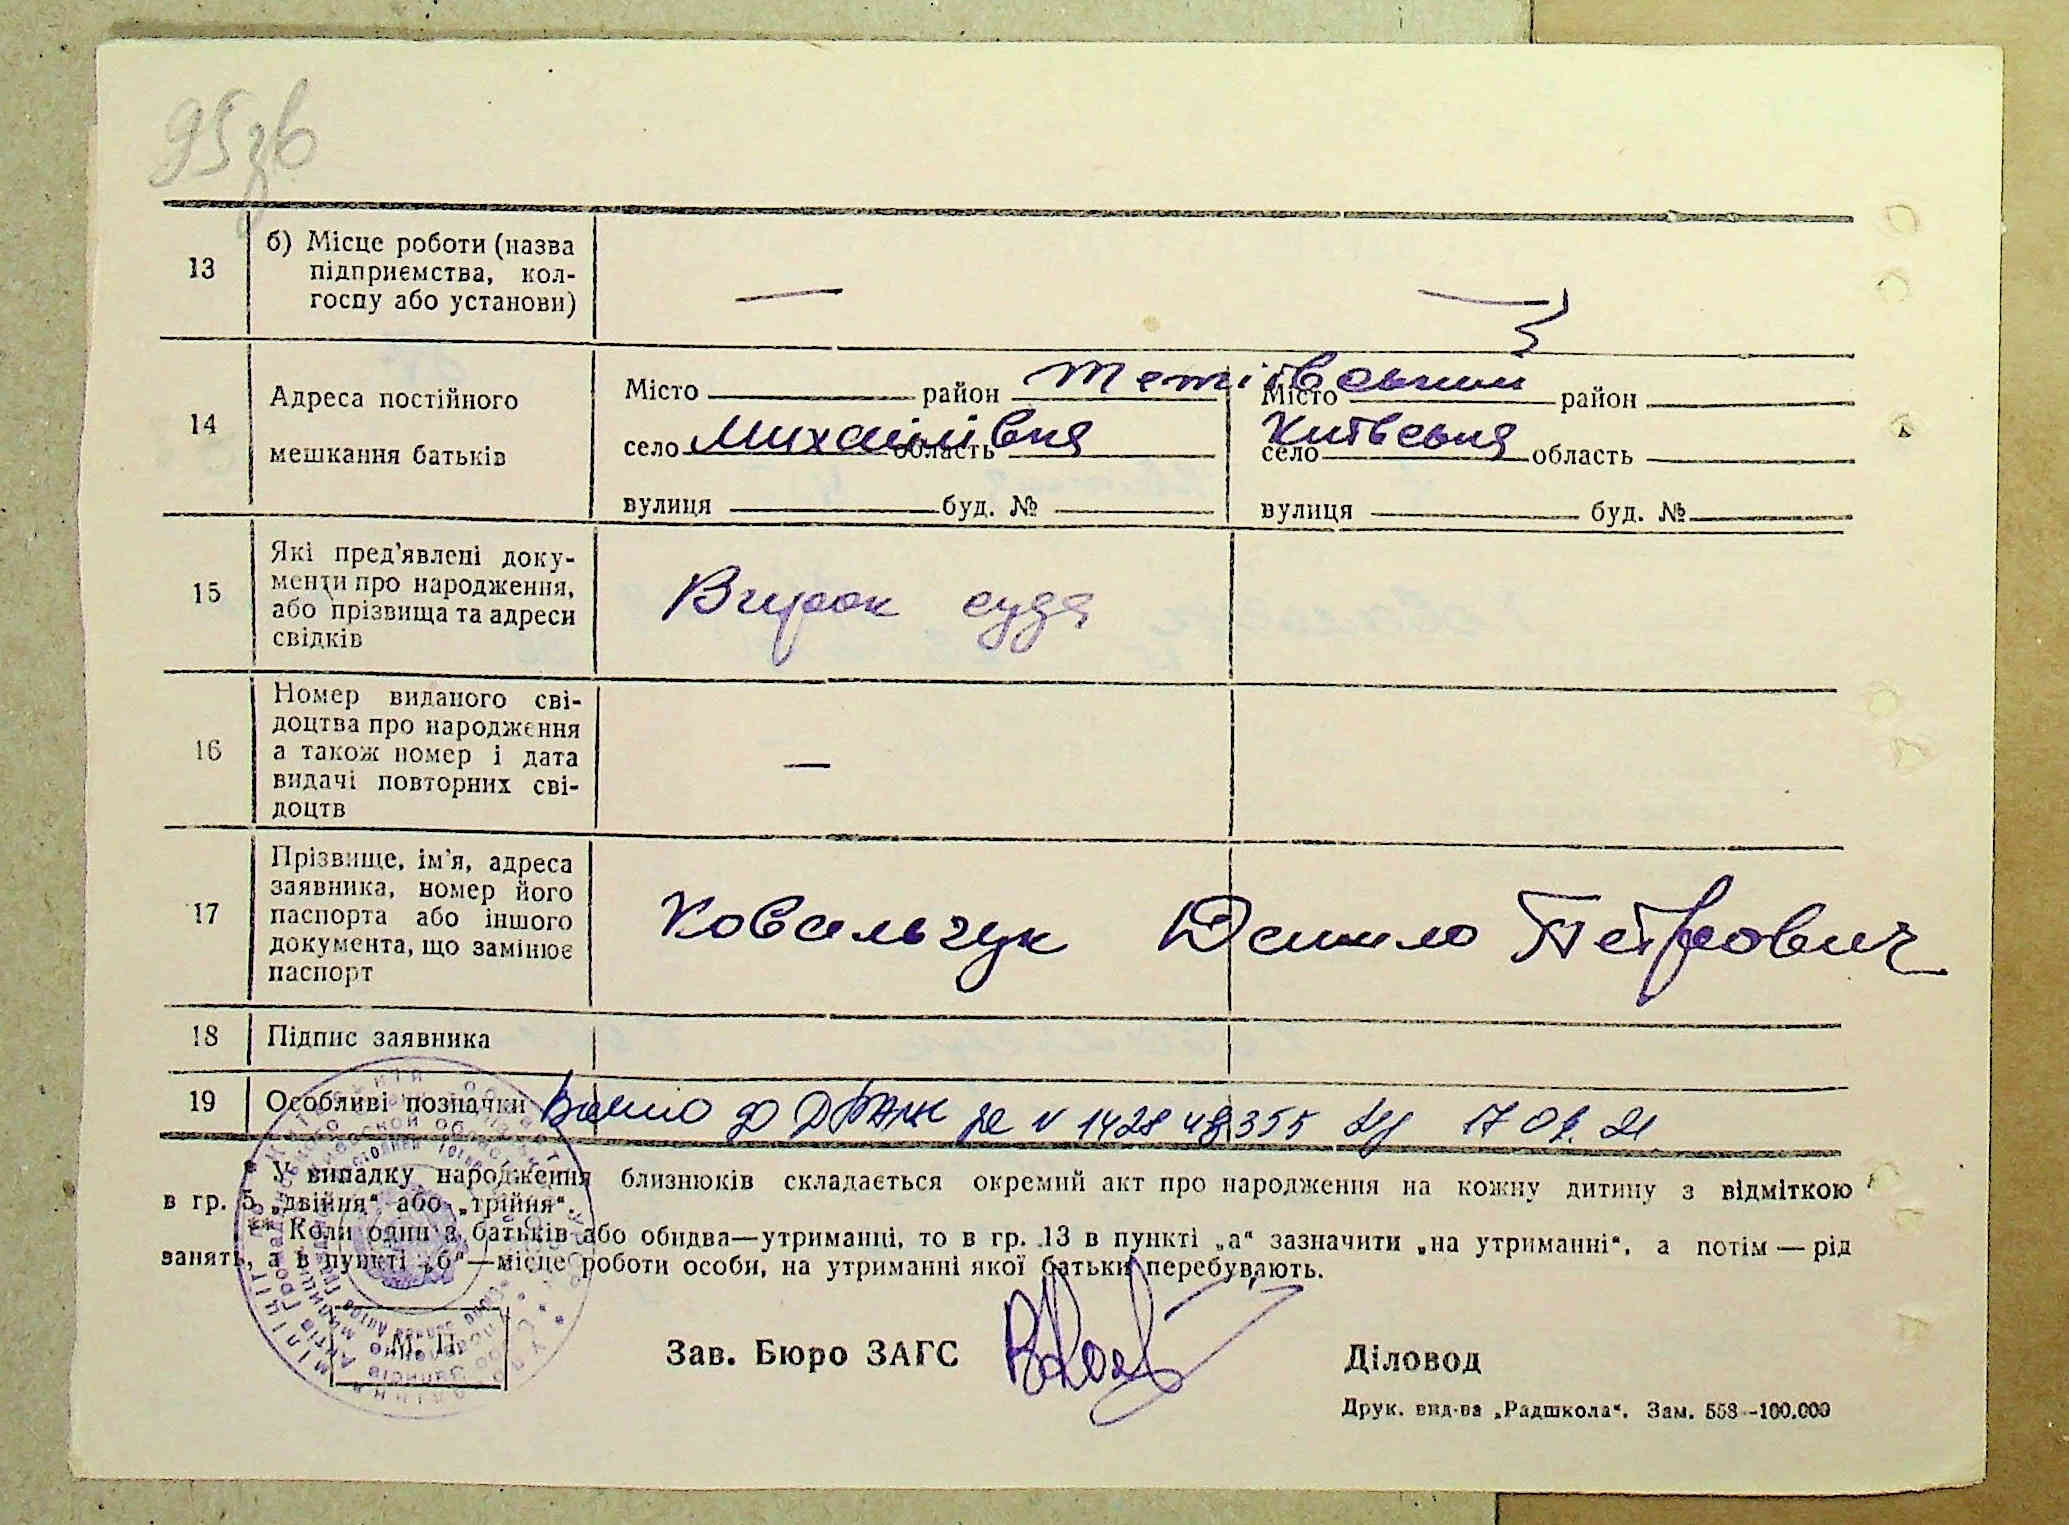 95зв
13
б) Місце роботи (назва
підприємства, кол-
госпу або установи)
—
—
14
Адреса постійного
мешкання батьків
Місто район Тетіївський
село Михайлівка область
вулиця буд. №
Місто район
село Київська область
вулиця буд. №
15
Які пред'явлені доку-
менти про народження,
або прізвища та адреси
свідків
Вирок суда
16
Номер виданого сві-
доцтва про народження
а також номер і дата
видачі повторних сві-
доцтв
—
17
Прізвище, ім'я, адреса
заявника, номер його
паспорта або іншого
документа, що замінює
паспорт
Ковальчук Данило Петрович
18
Підпис заявника
19
Особливі позначки
* У випадку народження близнюків складається окремий акт про народження на кожну дитину з відміткою
в гр. 5 „двійня“ або „трійня“.
** Коли один з батьків або обидва—утриманці, то в гр. 13 в пункті „а“ зазначити „на утриманні“, а потім — рід
занять, а в пункті „б“—місце роботи особи, на утриманні якої батьки перебувають.
М. П.
Зав. Бюро ЗАГС
Діловод
Друк. вид-ва „Радшкола“. Зам. 553—100.000